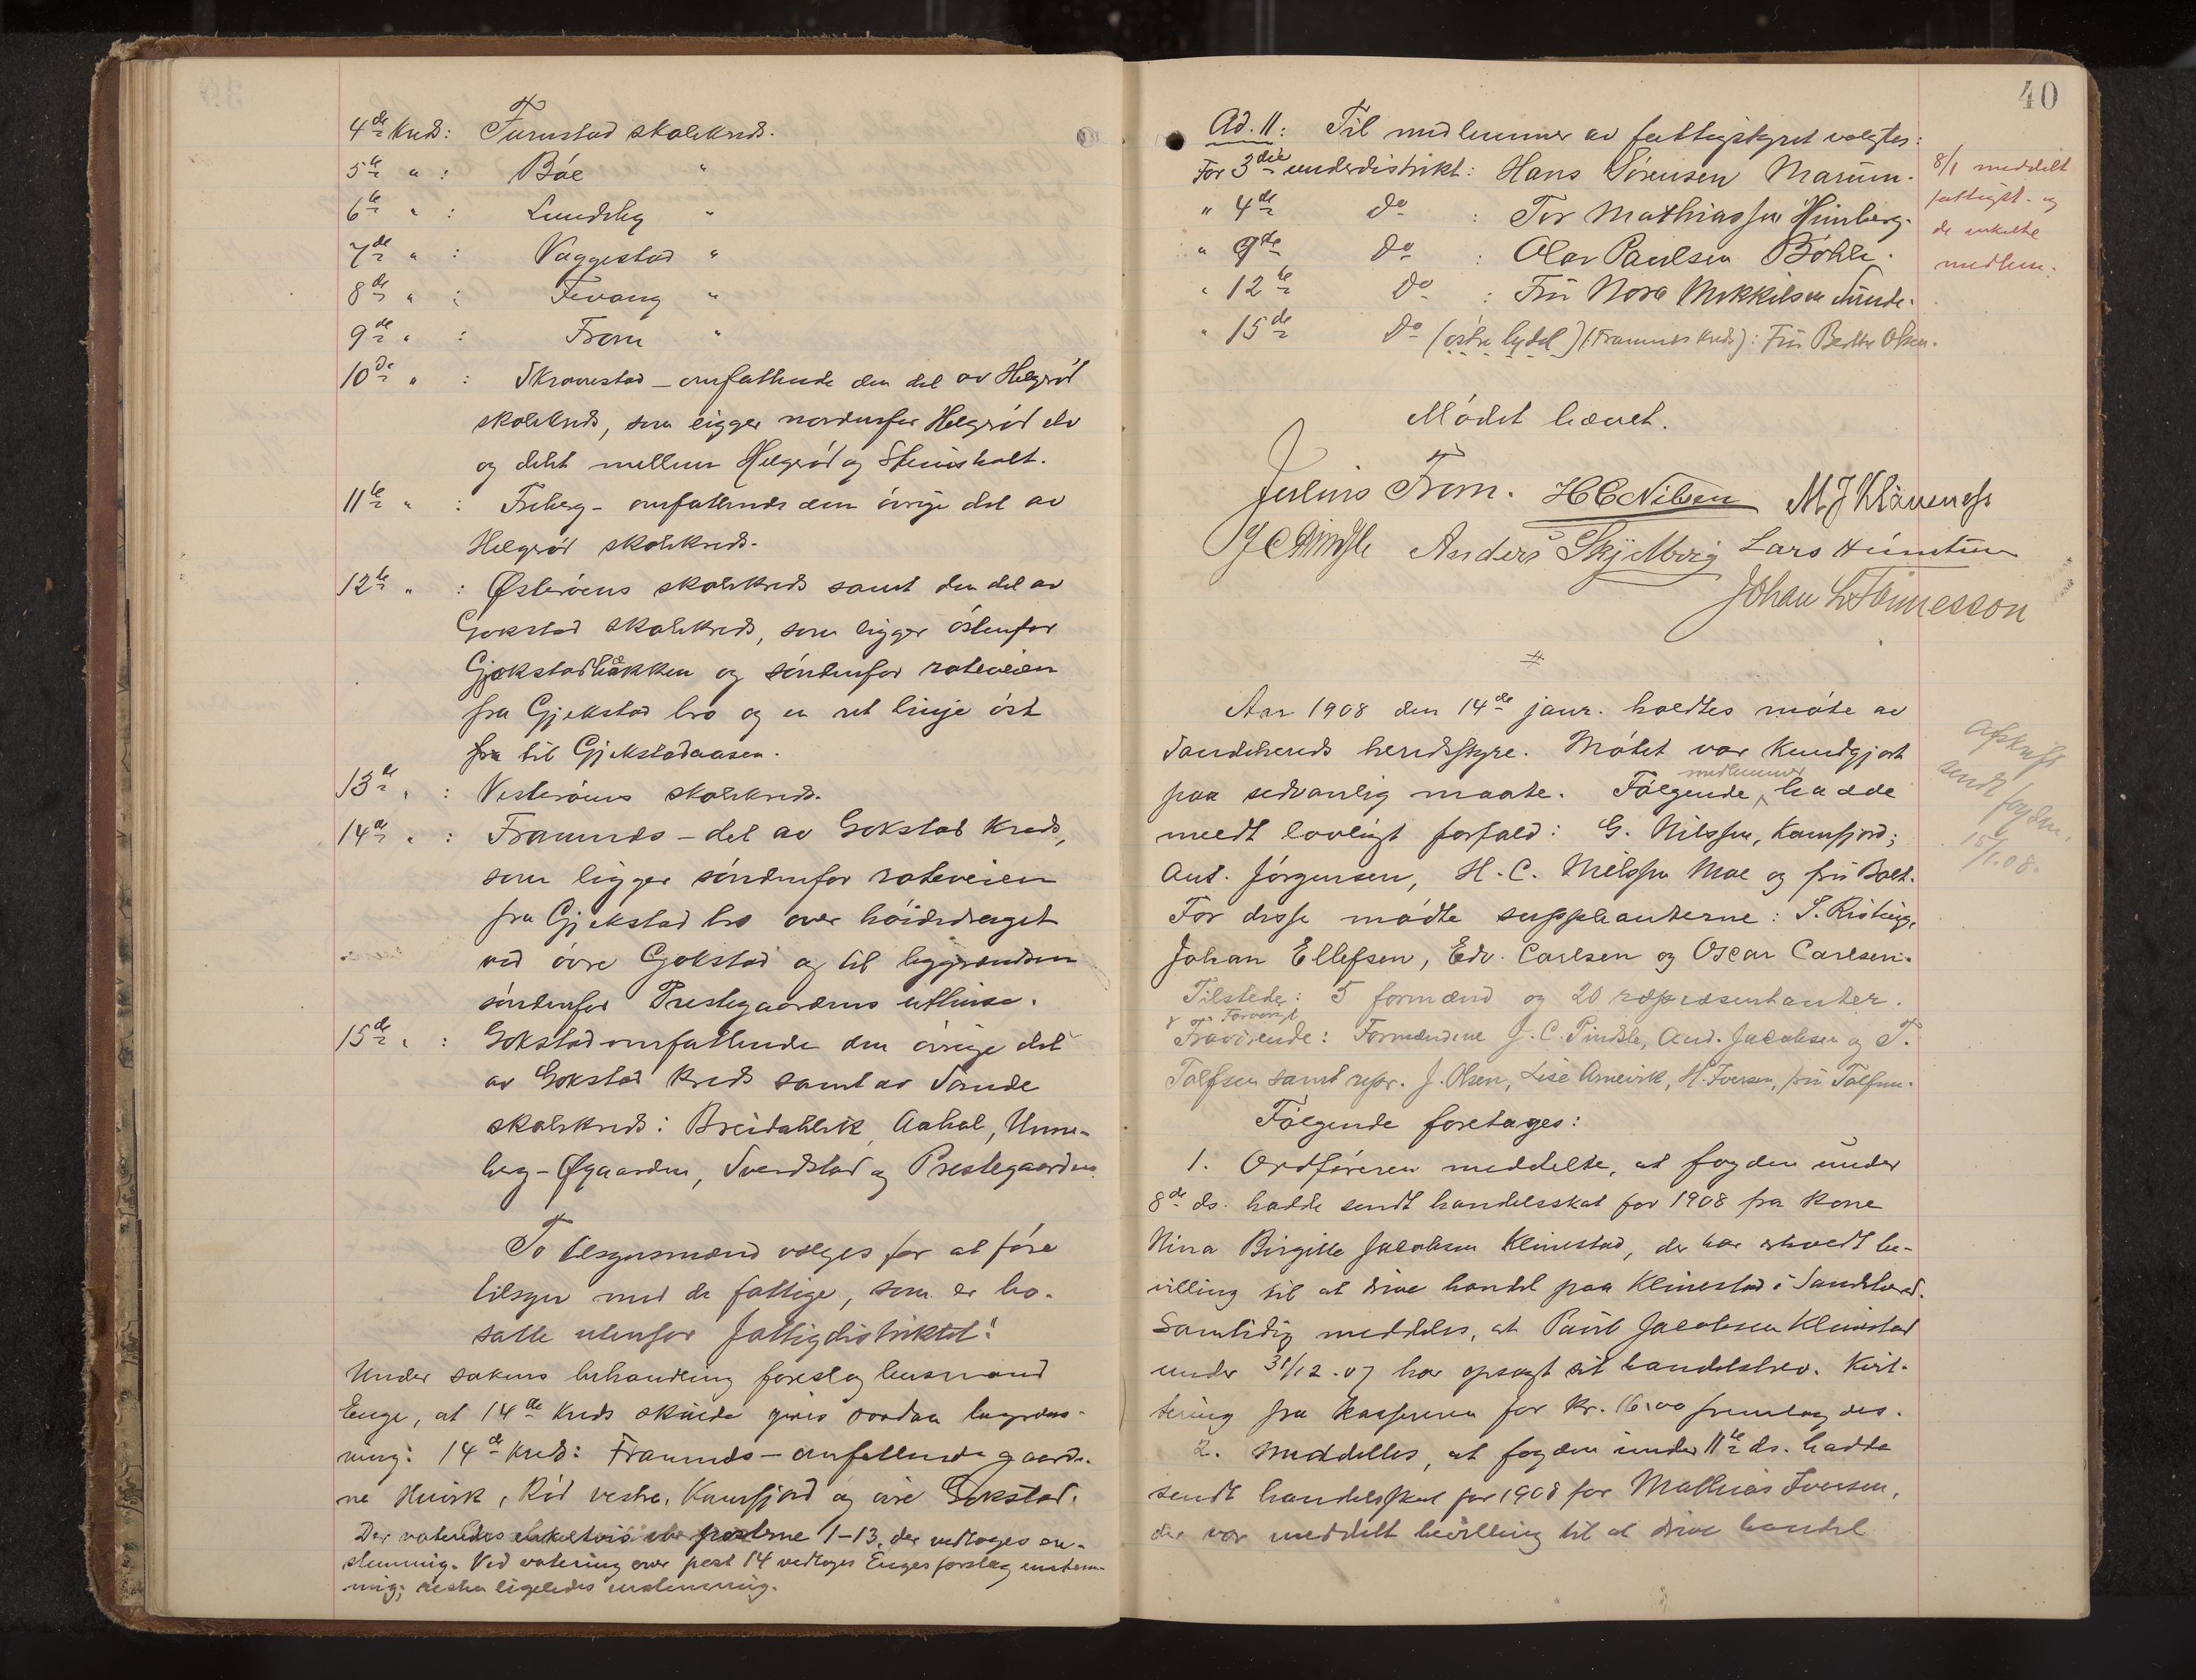 4de Kreds: Furustad skolekreds.
5te " : Bøe "
6te " : Lundeby "
7de " : Vaggestad "
8de " : Fevang "
9de " : Fram "
10de " : Skravestad – omfattende den del av Helgerød
skolekreds, som ligger nordenfor Helgerød elv
og delet mellem Helgerød og Stensholt.
11te " : Freberg – omfattende den övrige del av
Helgerød skolekreds.
12te " : Østerøens skolekreds samt den del av
Gokstad skolekreds, som ligger östenfor
Gjekstadbakken og söndenfor rodeveien
fra Gjekstad bro og en ret linje öst
til Gjekstadaasen.
13de " : Vesterøens skolekreds.
14de " : Framnes – del av Gokstad kreds,
som ligger söndenfor rodeveien
fra Gjekstad bro over höidedraget
ved övre Gokstad og til bygrændsen
söndenfor Prestegaardens uthuse.
15de " : Gokstad omfattende den övrige del
av Gokstad kreds samt av Sande
skolekreds: Breidablik, Aabol, Unne-
berg – Øgaarden, Svendstad og Prestegaarden.
To tilsynsmænd vælges for at före
tilsyn med de fattige, som er bo-
satte utenfor fattigdistriktet."
Under sakens behandling foreslog husmand
Enge, at 14de kreds skulde gives saadan begræns-
ning: 14de kreds: Framnes – omfattende gaarde-
ne Huvik, Rød vestre, Kamfjord og övre Gokstad.
Der voteredes enkeltvis over posterne 1–13, der vedtoges en-
stemmig. Ved votering over post 14 vedtoges Enges forslag enstem-
mig; resten ligeledes enstemmig.
40
Ad. 11: Til medlemmer av fattigstyret valgtes:
For 3die underdistrikt: Hans Sørensen Marum.
" 4de do : Tor Mathiassen Himberg.
" 9de do : Olav Paulsen Bøhle.
" 12te do : Fru Nora Mikkelsen Sunde.
" 15de do (østre bydel) (Framnes kreds): Fru Berthe Olsen.
8/1 meddelt
fattigst. og
de enkelte
medlem.
Mødet hævet.
Julius Fram. H C Nilsen M J Klaveness
J C Pindsle Anders Skjelbrei Lars Hunstun
Johan L Tønnesson
Aar 1908 den 14de janr. holdtes møte av
Sandeherreds herredsstyre. Møtet var kundgjort
paa sedvanlig maate. Følgende medlemmer hadde
meldt lovligt forfald: G. Nilssen, Kamfjord;
Ant. Jörgensen, H. C. Nielssen Moe og fru Bolt.
For disse mödte suppleanterne: S. Risting,
Johan Ellefsen, Edv. Carlsen og Oscar Carlsen.
Tilstede: 5 formænd og 20 repræsentanter.
Forøvrigt
Fraværende: Formændene J. C. Pindsle, And. Jacobsen og T.
Tolfsen samt repr. J. Olsen, Lise Arnevik, H. Iversen, fru Tolfsen.
Afskrift
sendt fogden.
15/1.08.
Følgende foretages:
1. Ordføreren meddelte, at fogden under
8de ds. hadde sendt handelsskat for 1908 fra kone
Nina Birgitte Jacobsen Klinestad, der har erholdt be-
villing til at drive handel paa Klinestad i Sandeherred.
Samtidig meddeles, at Paul Jacobsen Klinestad
under 31/12.07 har opsagt sit handelsbrev. Kvit-
tering fra kassereren for kr. 16.00 fremlagdes.
2. Meddeltes, at fogden under 11te ds. hadde
sendt handelsskat for 1908 for Mathias Iversen,
der var meddelt bevilling til at drive handel